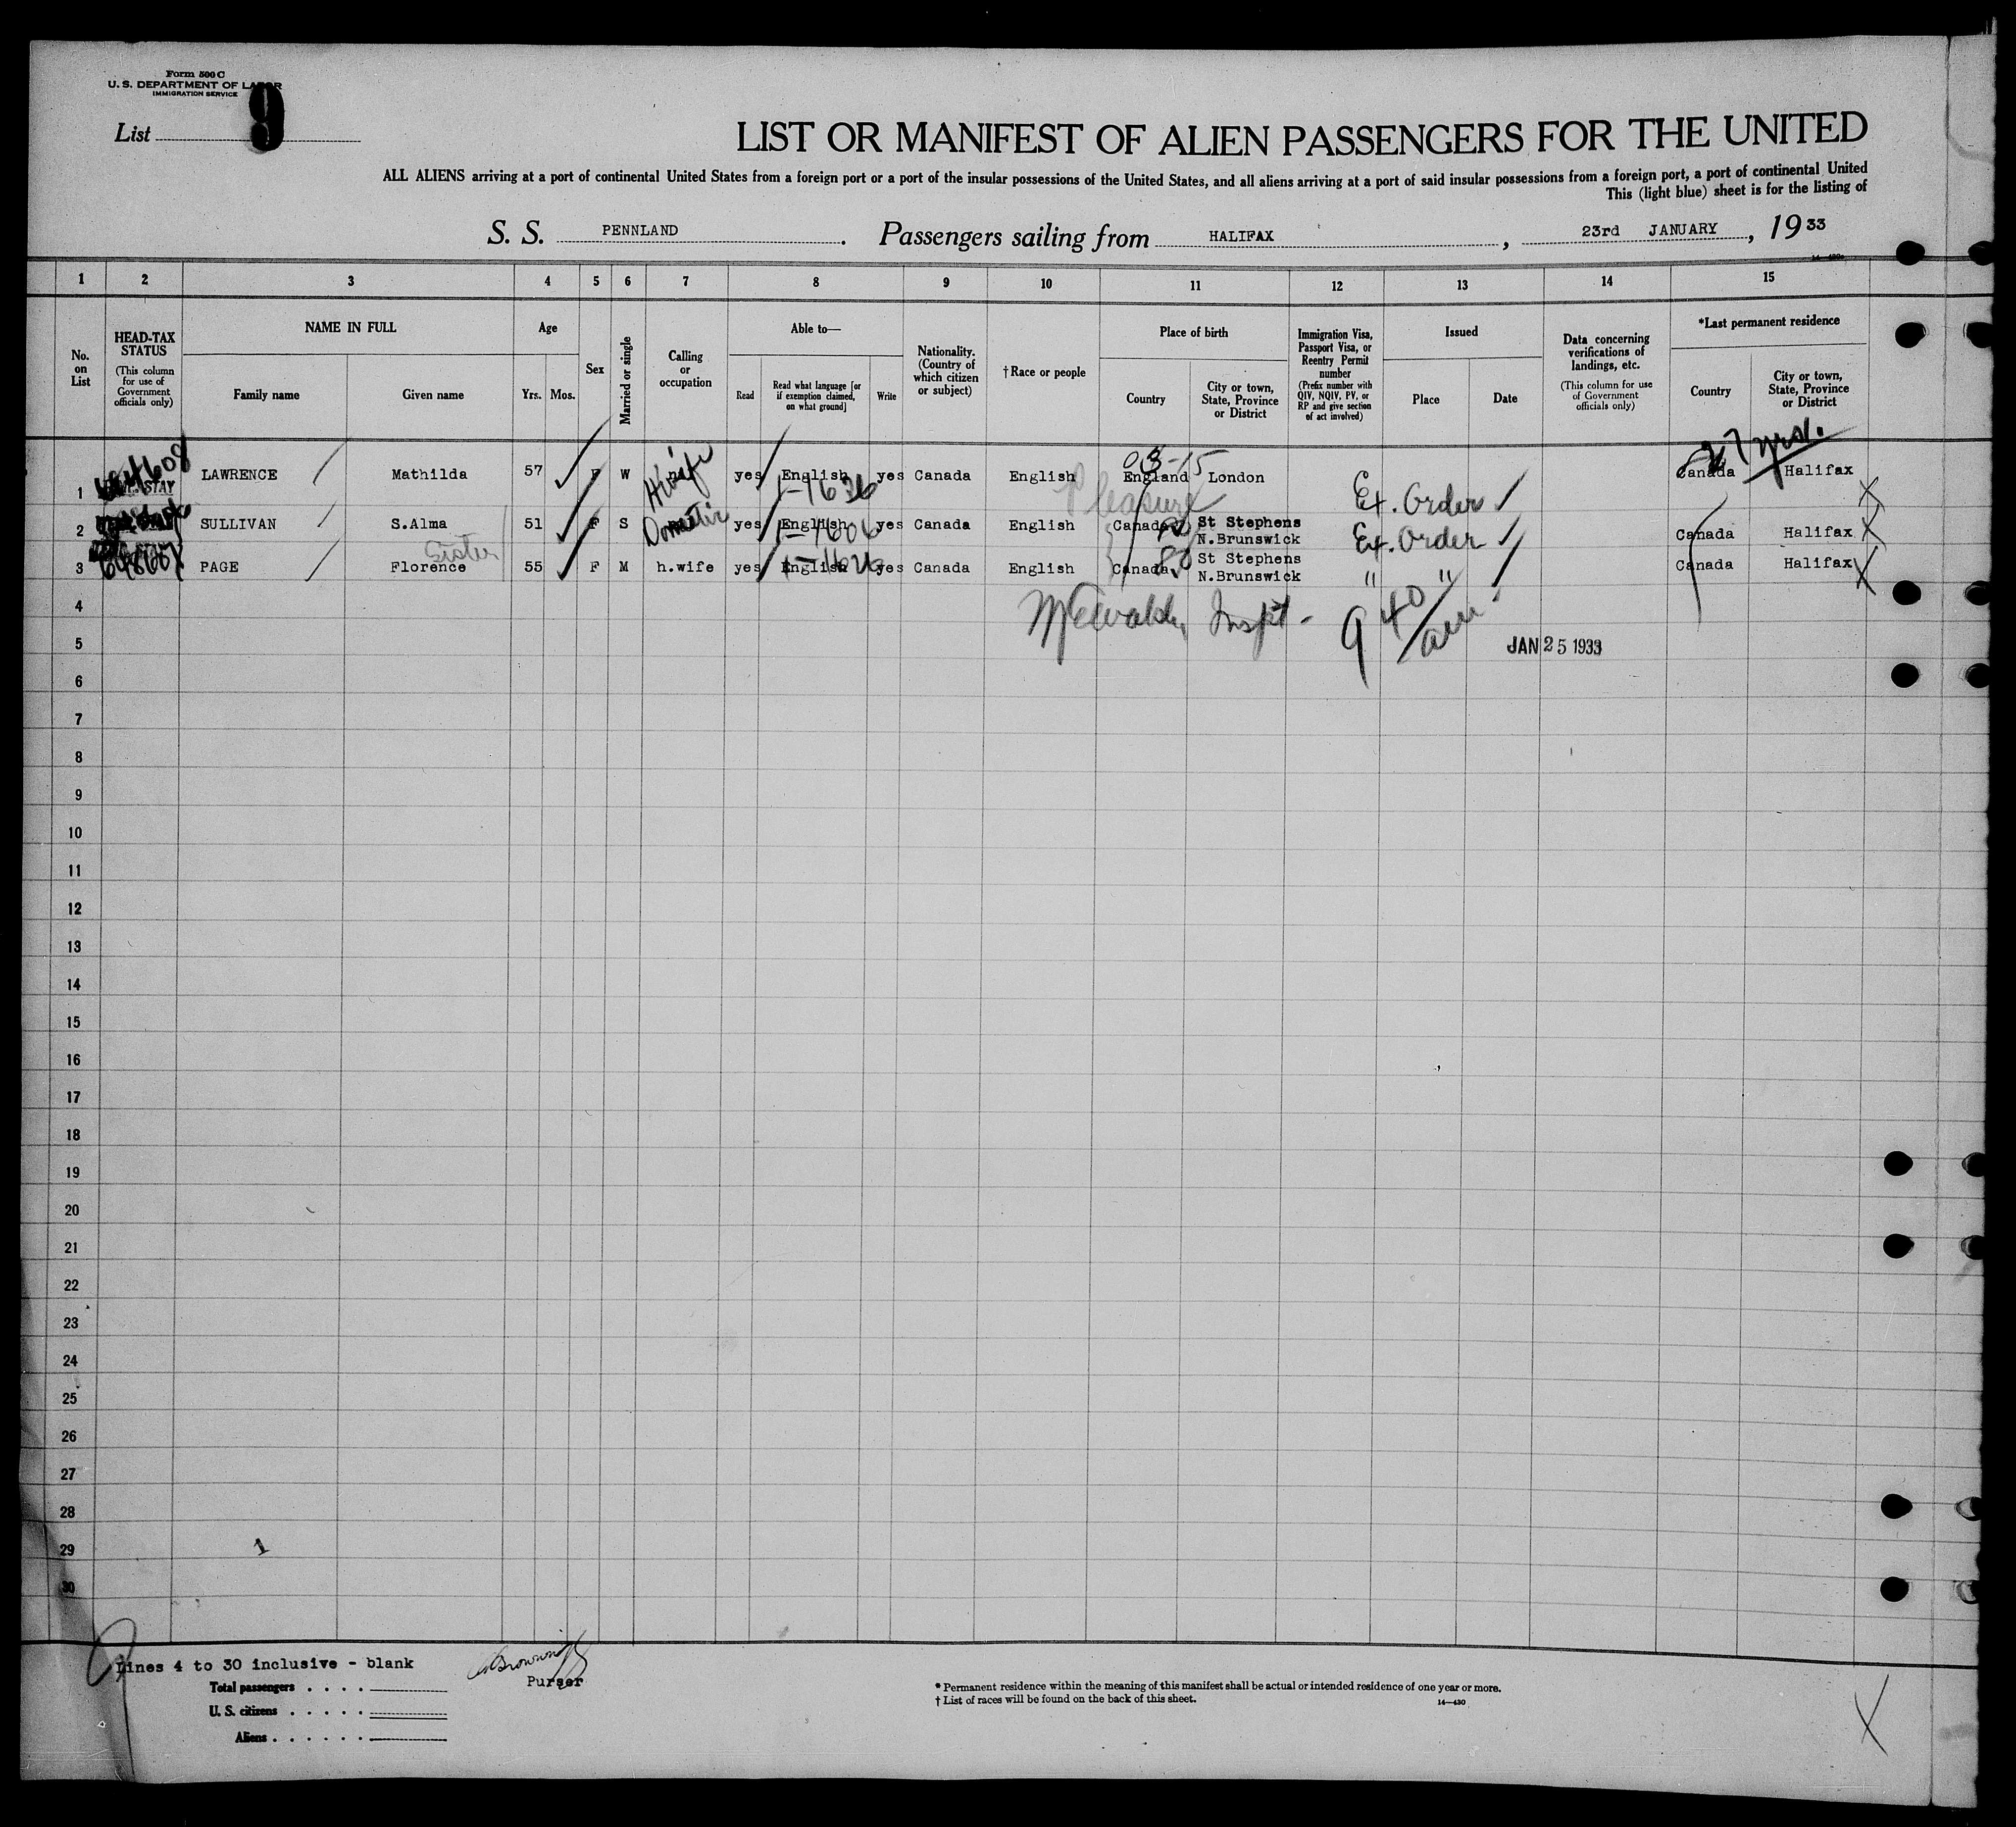 Form 500 C
U. S. DEPARTMENT OF LABOR
IMMIGRATION SERVICE
List 9
LIST OR MANIFEST OF ALIEN PASSENGERS FOR THE UNITED
ALL ALIENS arriving at a port of continental United States from a foreign port or a port of the insular possessions of the United States, and all aliens arriving at a port of said insular possessions from a foreign port, a port of continental United
This (light blue) sheet is for the listing of
S. S. PENNLAND. Passengers sailing from HALIFAX, 23rd JANUARY, 1933
1 2 3 4 5 6 7 8 9 10 11 12 13 14 15
No. on List
HEAD-TAX STATUS
(This column for use of Government officials only)
NAME IN FULL
Family name Given name
Age
Yrs. Mos.
Sex
Married or single
Calling or occupation
Able to—
Read
Read what language [or if exemption claimed, on what ground]
Write
Nationality. (Country of which citizen or subject)
†Race or people
Place of birth
Country
City or town, State, Province or District
Immigration Visa, Passport Visa, or Reentry Permit number
(Prefix number with QIV, NQIV, PV, or RP and give section of act involved)
Issued
Place Date
Data concerning verifications of landings, etc.
(This column for use of Government officials only)
*Last permanent residence
Country
City or town, State, Province or District
27 yrs.
03-15
1 LAWRENCE Mathilda 57 F W H.wife yes English yes Canada English England London Ex. Order Canada Halifax
1-1636
Pleasure
2 SULLIVAN S.Alma 51 F S Domestic yes English yes Canada English Canada St Stephens N.Brunswick Ex. Order Canada Halifax
1-1606
Sister
3 PAGE Florence 55 F M h.wife yes English yes Canada English Canada St Stephens N.Brunswick " " Canada Halifax
4
Inspt - 9 40/am
5
JAN 25 1933
6
7
8
9
10
11
12
13
14
15
16
17
18
19
20
21
22
23
24
25
26
27
28
29
30
Lines 4 to 30 inclusive - blank
Purser
Total passengers . . . .
U. S. citizens . . . . .
Aliens . . . . . .
* Permanent residence within the meaning of this manifest shall be actual or intended residence of one year or more.
† List of races will be found on the back of this sheet.
14—430